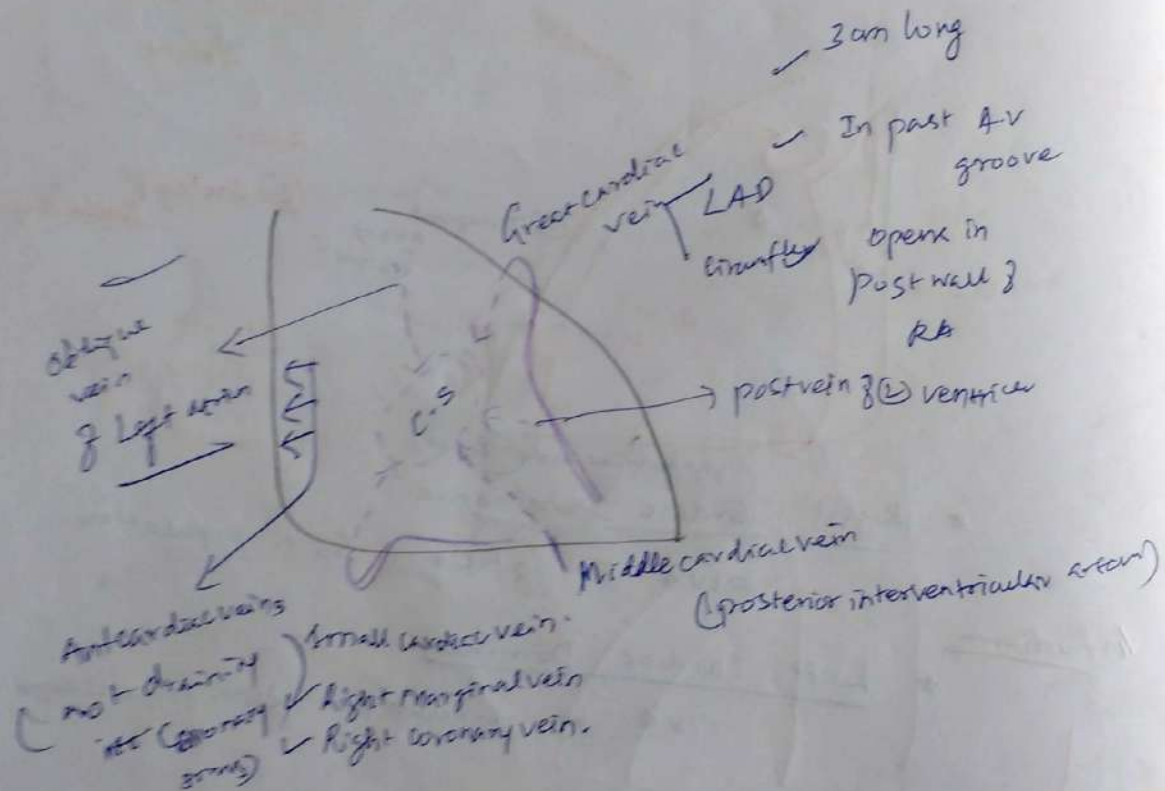 3 cm long
In post A.V
groove
opens in
post wall of
RA
Great cardiac
vein
LAD
circumflex
oblique
vein
of Left atrium
C.S
post vein of (L) ventricle
Middle cardiac vein
(posterior interventricular artery)
Ant cardiac veins
(not draining
into coronary
sinus)
Small cardiac vein.
Right marginal vein
Right coronary vein.